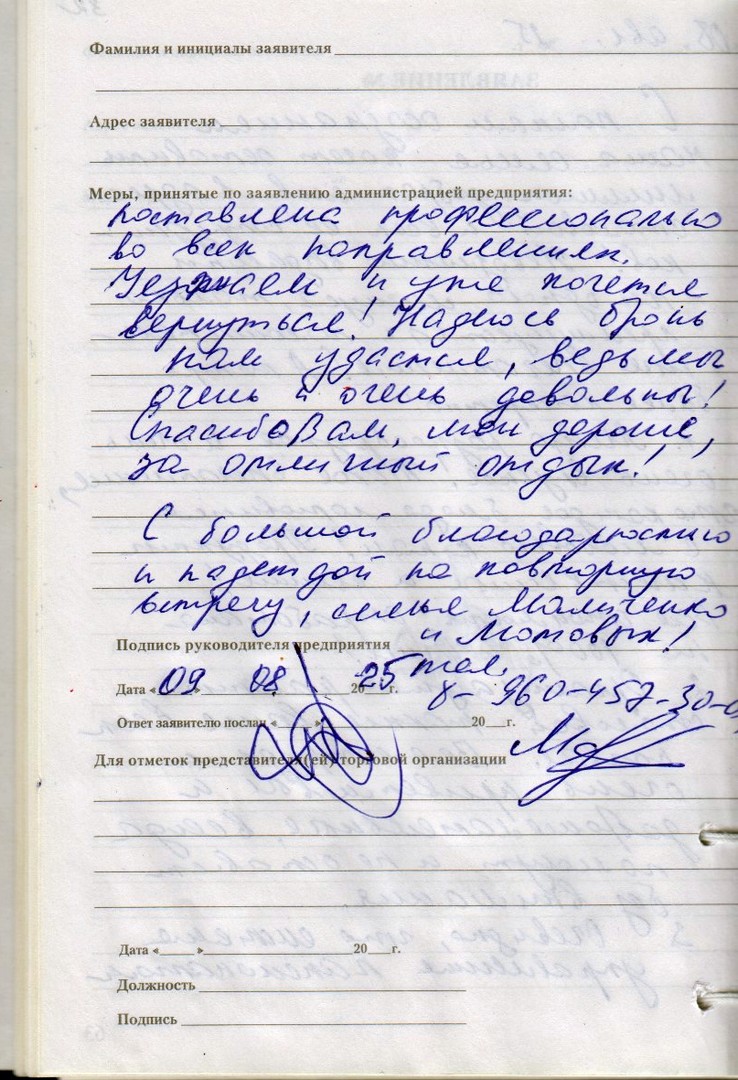 Фамилия и инициалы заявителя
Адрес заявителя
Меры, принятые по заявлению администрацией предприятия:
поставлена профессионально
во всех направлениях.
Уезжаем и уже хочется
вернуться! Надеюсь бронь
нам удастся, ведь мы
очень и очень довольны!
Спасибо Вам, мои дорогие,
за отличный отдых!
С большой благодарностью
и надеждой на повторную
встречу, семья Маличенко
и Мотовых!
Подпись руководителя предприятия
тел.
Дата «09» 08 2025 г.
8-960-457-30-
Ответ заявителю послан « » 20 г.
Для отметок представителя(ей) торговой организации
Дата « » 20 г.
Должность
Подпись